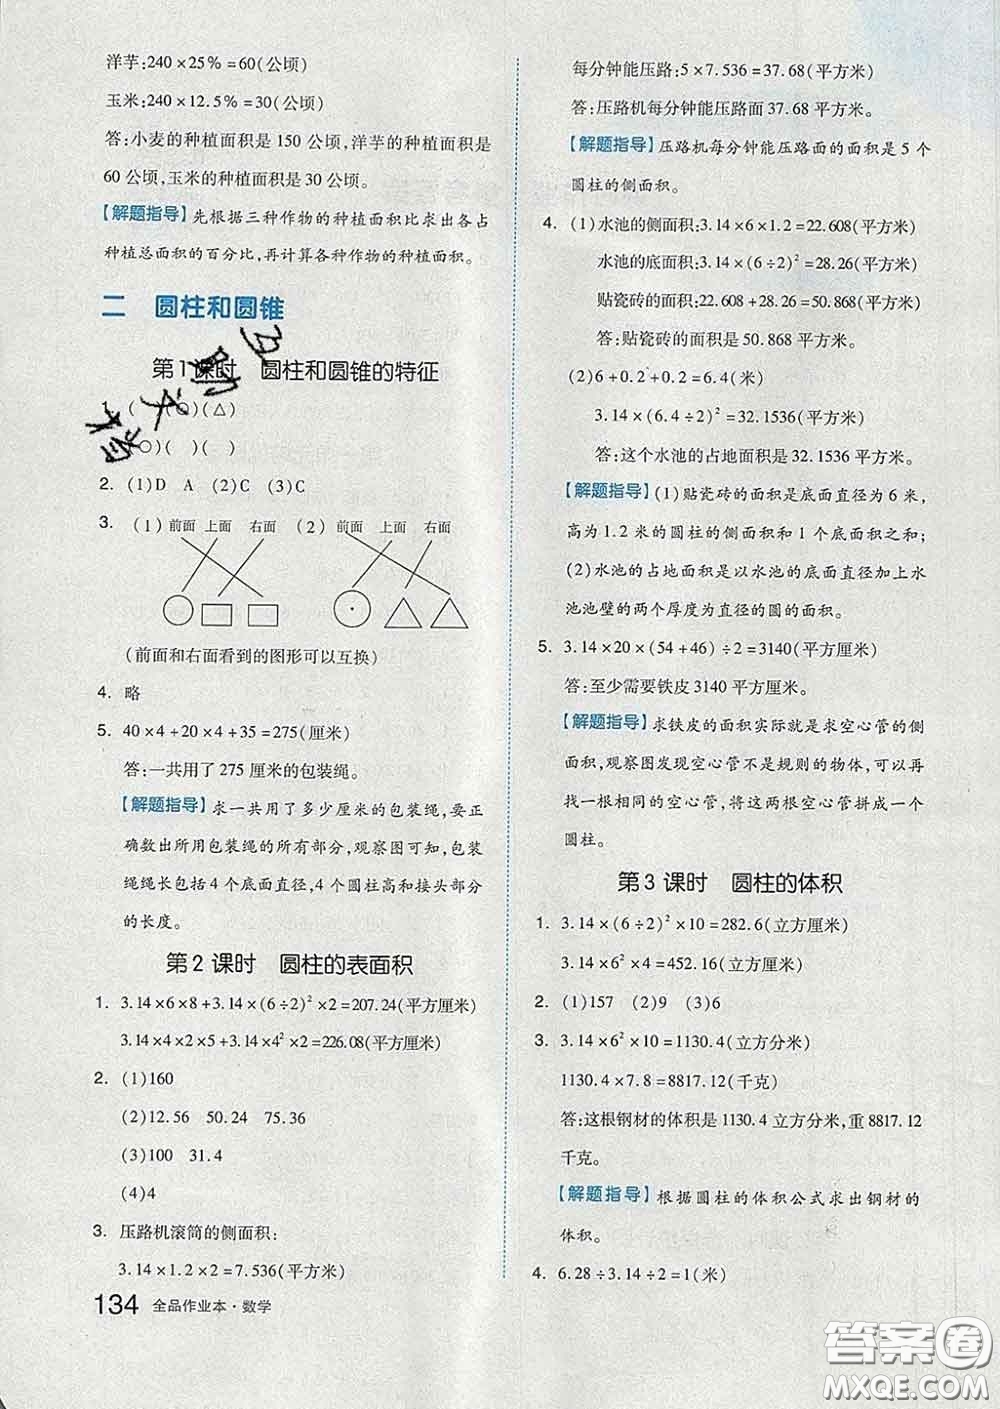 洋芋:240×25%=60(公顷)
玉米:240×12.5%=30(公顷)
答:小麦的种植面积是 150 公顷,洋芋的种植面积是
60 公顷,玉米的种植面积是 30 公顷。
【解题指导】先根据三种作物的种植面积比求出各占
种植总面积的百分比,再计算各种作物的种植面积。
二 圆柱和圆锥
第1课时 圆柱和圆锥的特征
(○)(△)
○)( )( )
2. (1)D A (2)C (3)C
3. (1) 前面 上面 右面 (2) 前面 上面 右面
(前面和右面看到的图形可以互换)
4. 略
5. 40×4+20×4+35=275(厘米)
答:一共用了 275 厘米的包装绳。
【解题指导】求一共用了多少厘米的包装绳,要正
确数出所用包装绳的所有部分,观察图可知,包装
绳绳长包括 4 个底面直径,4 个圆柱高和接头部分
的长度。
第2课时 圆柱的表面积
1. 3.14×6×8+3.14×(6÷2)²×2=207.24(平方厘米)
3.14×4×2×5+3.14×4²×2=226.08(平方厘米)
2. (1)160
(2)12.56 50.24 75.36
(3)100 31.4
(4)4
3. 压路机滚筒的侧面积:
3.14×1.2×2=7.536(平方米)
134 全品作业本·数学
每分钟能压路:5×7.536=37.68(平方米)
答:压路机每分钟能压路面 37.68 平方米。
【解题指导】压路机每分钟能压路面的面积是 5 个
圆柱的侧面积。
4. (1)水池的侧面积:3.14×6×1.2=22.608(平方米)
水池的底面积:3.14×(6÷2)²=28.26(平方米)
贴瓷砖的面积:22.608+28.26=50.868(平方米)
答:贴瓷砖的面积是 50.868 平方米。
(2)6+0.2+0.2=6.4(米)
3.14×(6.4÷2)²=32.1536(平方米)
答:这个水池的占地面积是 32.1536 平方米。
【解题指导】(1)贴瓷砖的面积是底面直径为 6 米,
高为 1.2 米的圆柱的侧面积和 1 个底面积之和;
(2)水池的占地面积是以水池的底面直径加上水
池池壁的两个厚度为直径的圆的面积。
5. 3.14×20×(54+46)÷2=3140(平方厘米)
答:至少需要铁皮 3140 平方厘米。
【解题指导】求铁皮的面积实际就是求空心管的侧
面积,观察图发现空心管不是规则的物体,可以再
找一根相同的空心管,将这两根空心管拼成一个
圆柱。
第3课时 圆柱的体积
1. 3.14×(6÷2)²×10=282.6(立方厘米)
3.14×6²×4=452.16(立方厘米)
2. (1)157 (2)9 (3)6
3. 3.14×6²×10=1130.4(立方分米)
1130.4×7.8=8817.12(千克)
答:这根钢材的体积是 1130.4 立方分米,重 8817.12
千克。
【解题指导】根据圆柱的体积公式求出钢材的
体积。
4. 6.28÷3.14÷2=1(米)
答案圈
MXQE.COM